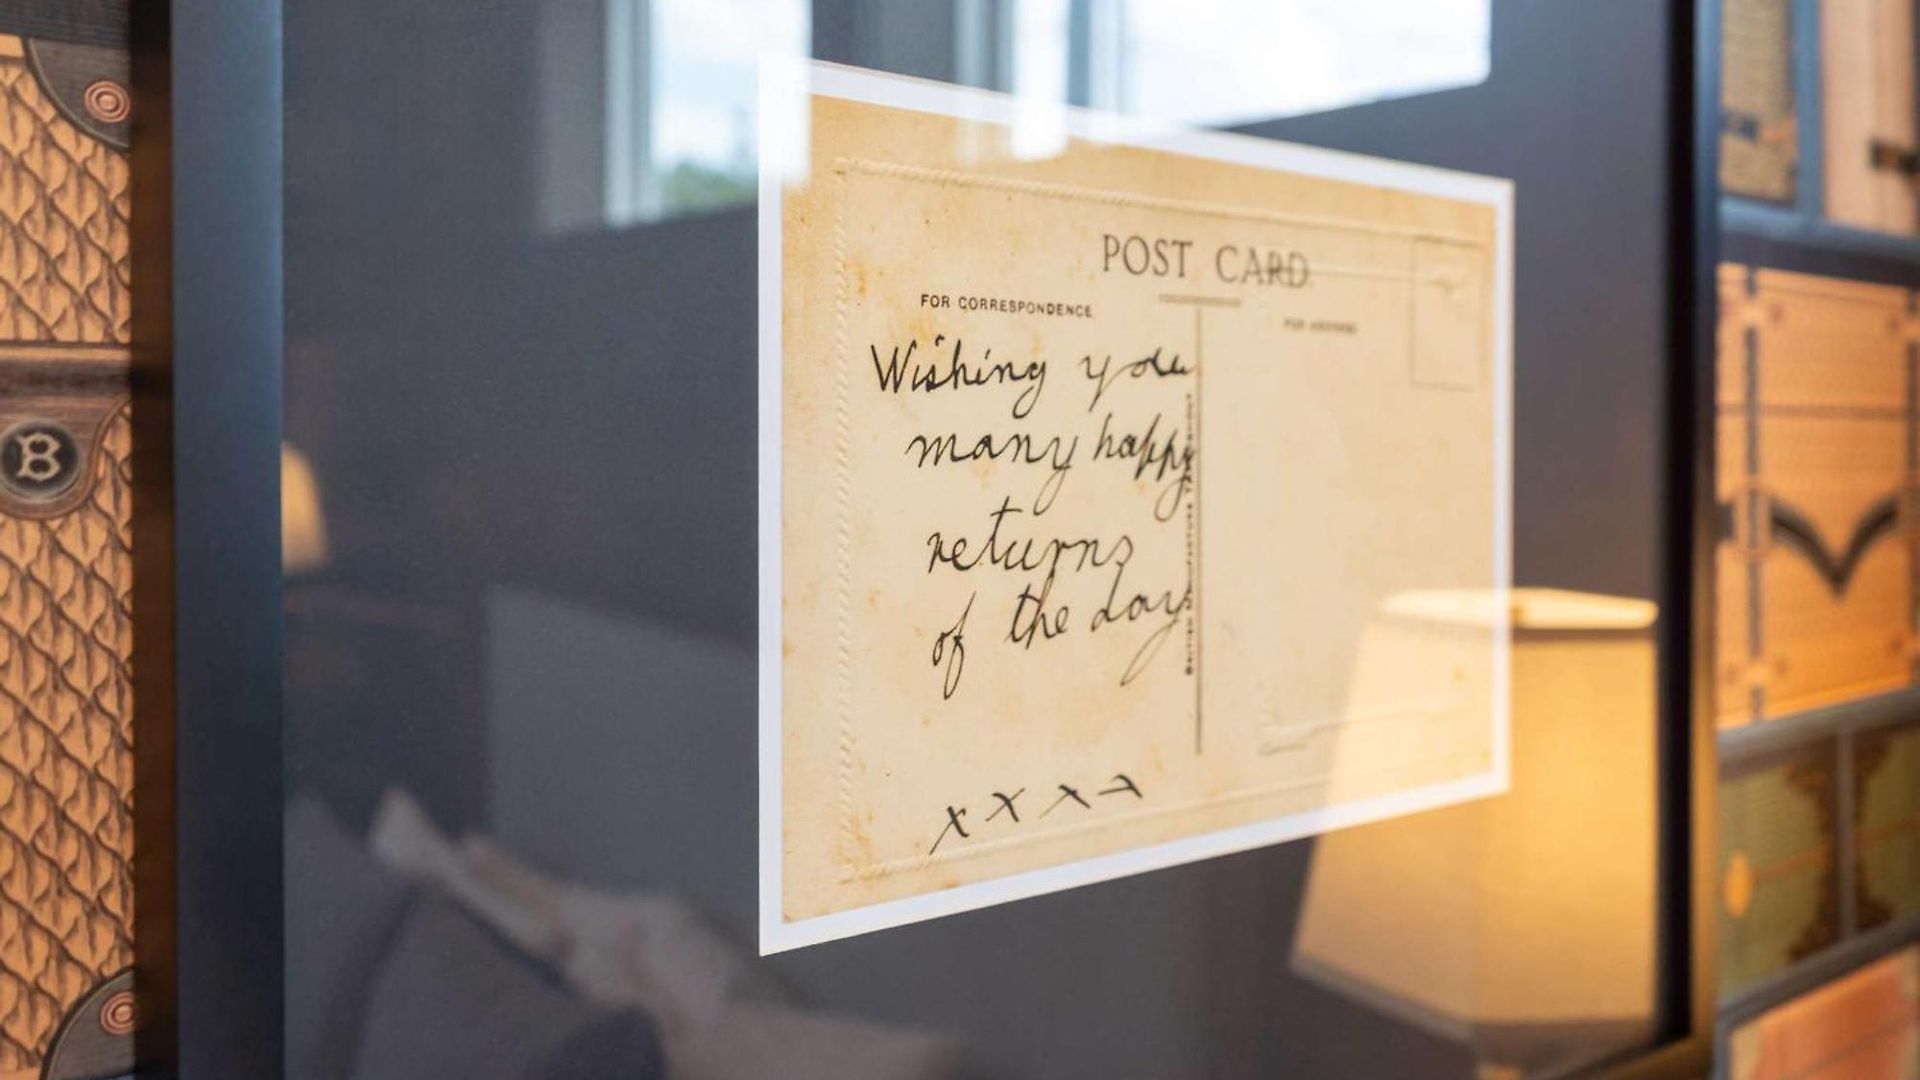 POST CARD
FOR CORRESPONDENCE
FOR ADDRESS
Wishing you
many happy
returns
of the day
x x x x
B